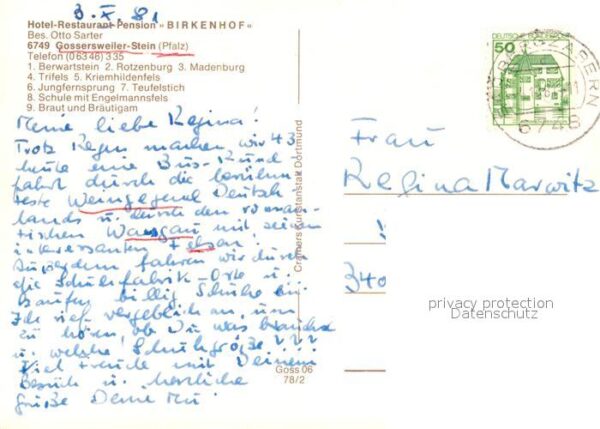 3. X. 81
Hotel-Restaurant-Pension »BIRKENHOF«
Bes. Otto Sarter
6749 Gossersweiler-Stein (Pfalz)
Telefon (06346) 335
1. Berwartstein 2. Rotzenburg 3. Madenburg
4. Trifels 5. Kriemhildenfels
6. Jungfernsprung 7. Teufelstich
8. Schule mit Engelmannsfels
9. Braut und Bräutigam
Meine liebe Regina!
Trotz Regen machen wir 43
heute eine Bus-Rund-
fahrt durch die berühm-
teste Weingegend Deutsch-
lands u. durch den roman-
tischen Wasgau mit seinen
interessanten Felsen.
Außerdem fahren wir durch
die Schuhfabrik-Orte u.
kaufen billig Schuhe ein.
Ich rief vergeblich an, um
zu hören, ob Du was brauchst
u. welche Schuhgröße???
Viel Freude mit Deinem
Besuch u. herzliche
Grüße Deine Mu!
Cramers Kunstanstalt Dortmund
Goss 06
78/2
50
DEUTSCHE BUNDESPOST
BERGZABERN
6748
Frau
Regina Marwitz
340
privacy protection
Datenschutz